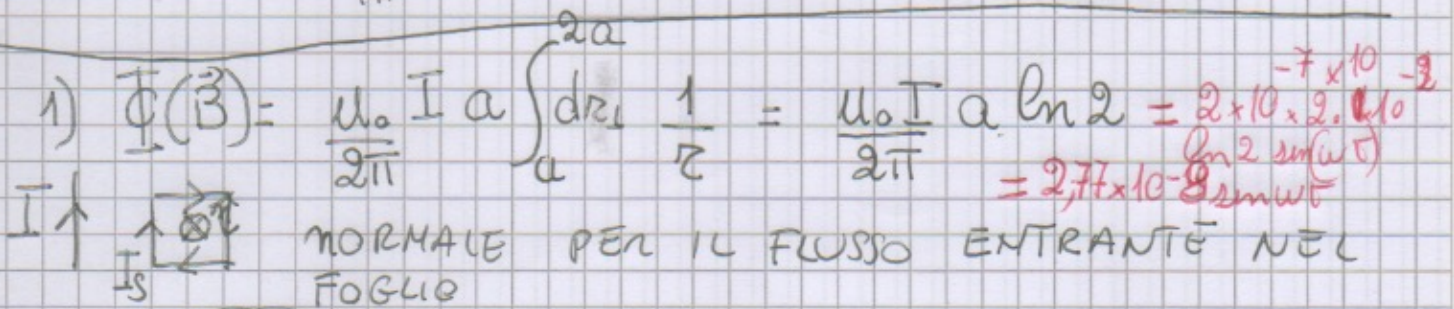 1) Φ(B⃗) = μ₀/2π I a ∫ₐ²ᵃ dr 1/r = μ₀I/2π a ln 2 = 2×10⁻⁷ × 10 × 2·10⁻² ln 2 sin(ωt)
= 2,77×10⁻⁸ sin ωt
I ↑ ⊗ n
Is
NORMALE PER IL FLUSSO ENTRANTE NEL
FOGLIO